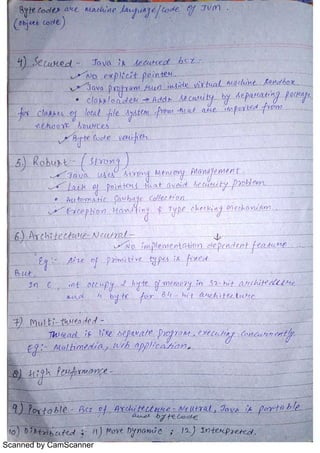 Byte Codes are machine language/code of JVM.
(object code)
4) Secured - Java is secured bcz:-
✓ No explicit pointer.
✓ Java program run inside virtual machine sandbox.
• classloader → Adds security by separating package
for classes of local file system from that are imported from
network sources
✓ Byte Code verifier
5) Robust :- ( Strong )
✓ Java uses strong Memory Management
✓ Lack of pointers that avoid security problem
• Automatic Garbage Collection
✓ Exception Handling & Type checking mechanism.
6.) Architecture-Neural-
✓ No implementation dependent feature
Eg:- size of primitive types is fixed
But,
In C, int occupy 2 byte of memory in 32-bit architecture
and 4 byte for 64-bit architecture
7) Multi-threaded -
Thread is like separate program, executing concurrently.
Eg:- Multimedia, Web application.
8) High Performance-
9) Portable - Bcs of Architecture-Neutral, Java is portable
and bytecode
10) Distributed ; 11) More Dynamic ; 12.) Interpreted.
Scanned by CamScanner